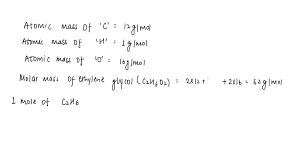 Atomic mass of 'C' = 12 g/mol
Atomic mass of 'H' = 1 g/mol
Atomic mass of 'O' = 16 g/mol
Molar mass of ethylene glycol (C2H6O2) = 2x12 + + 2x16 = 62 g/mol
1 mole of C2H6